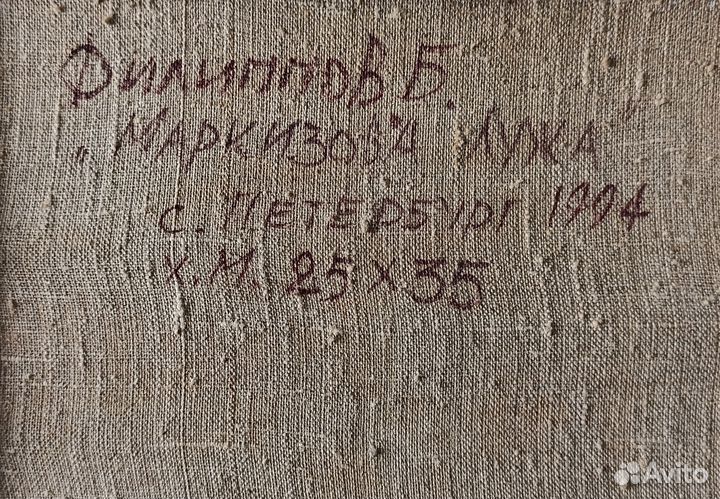 Филиппов Б.
„Маркизова Лужа"
С. Петербург 1994
х.м. 25х35
Avito